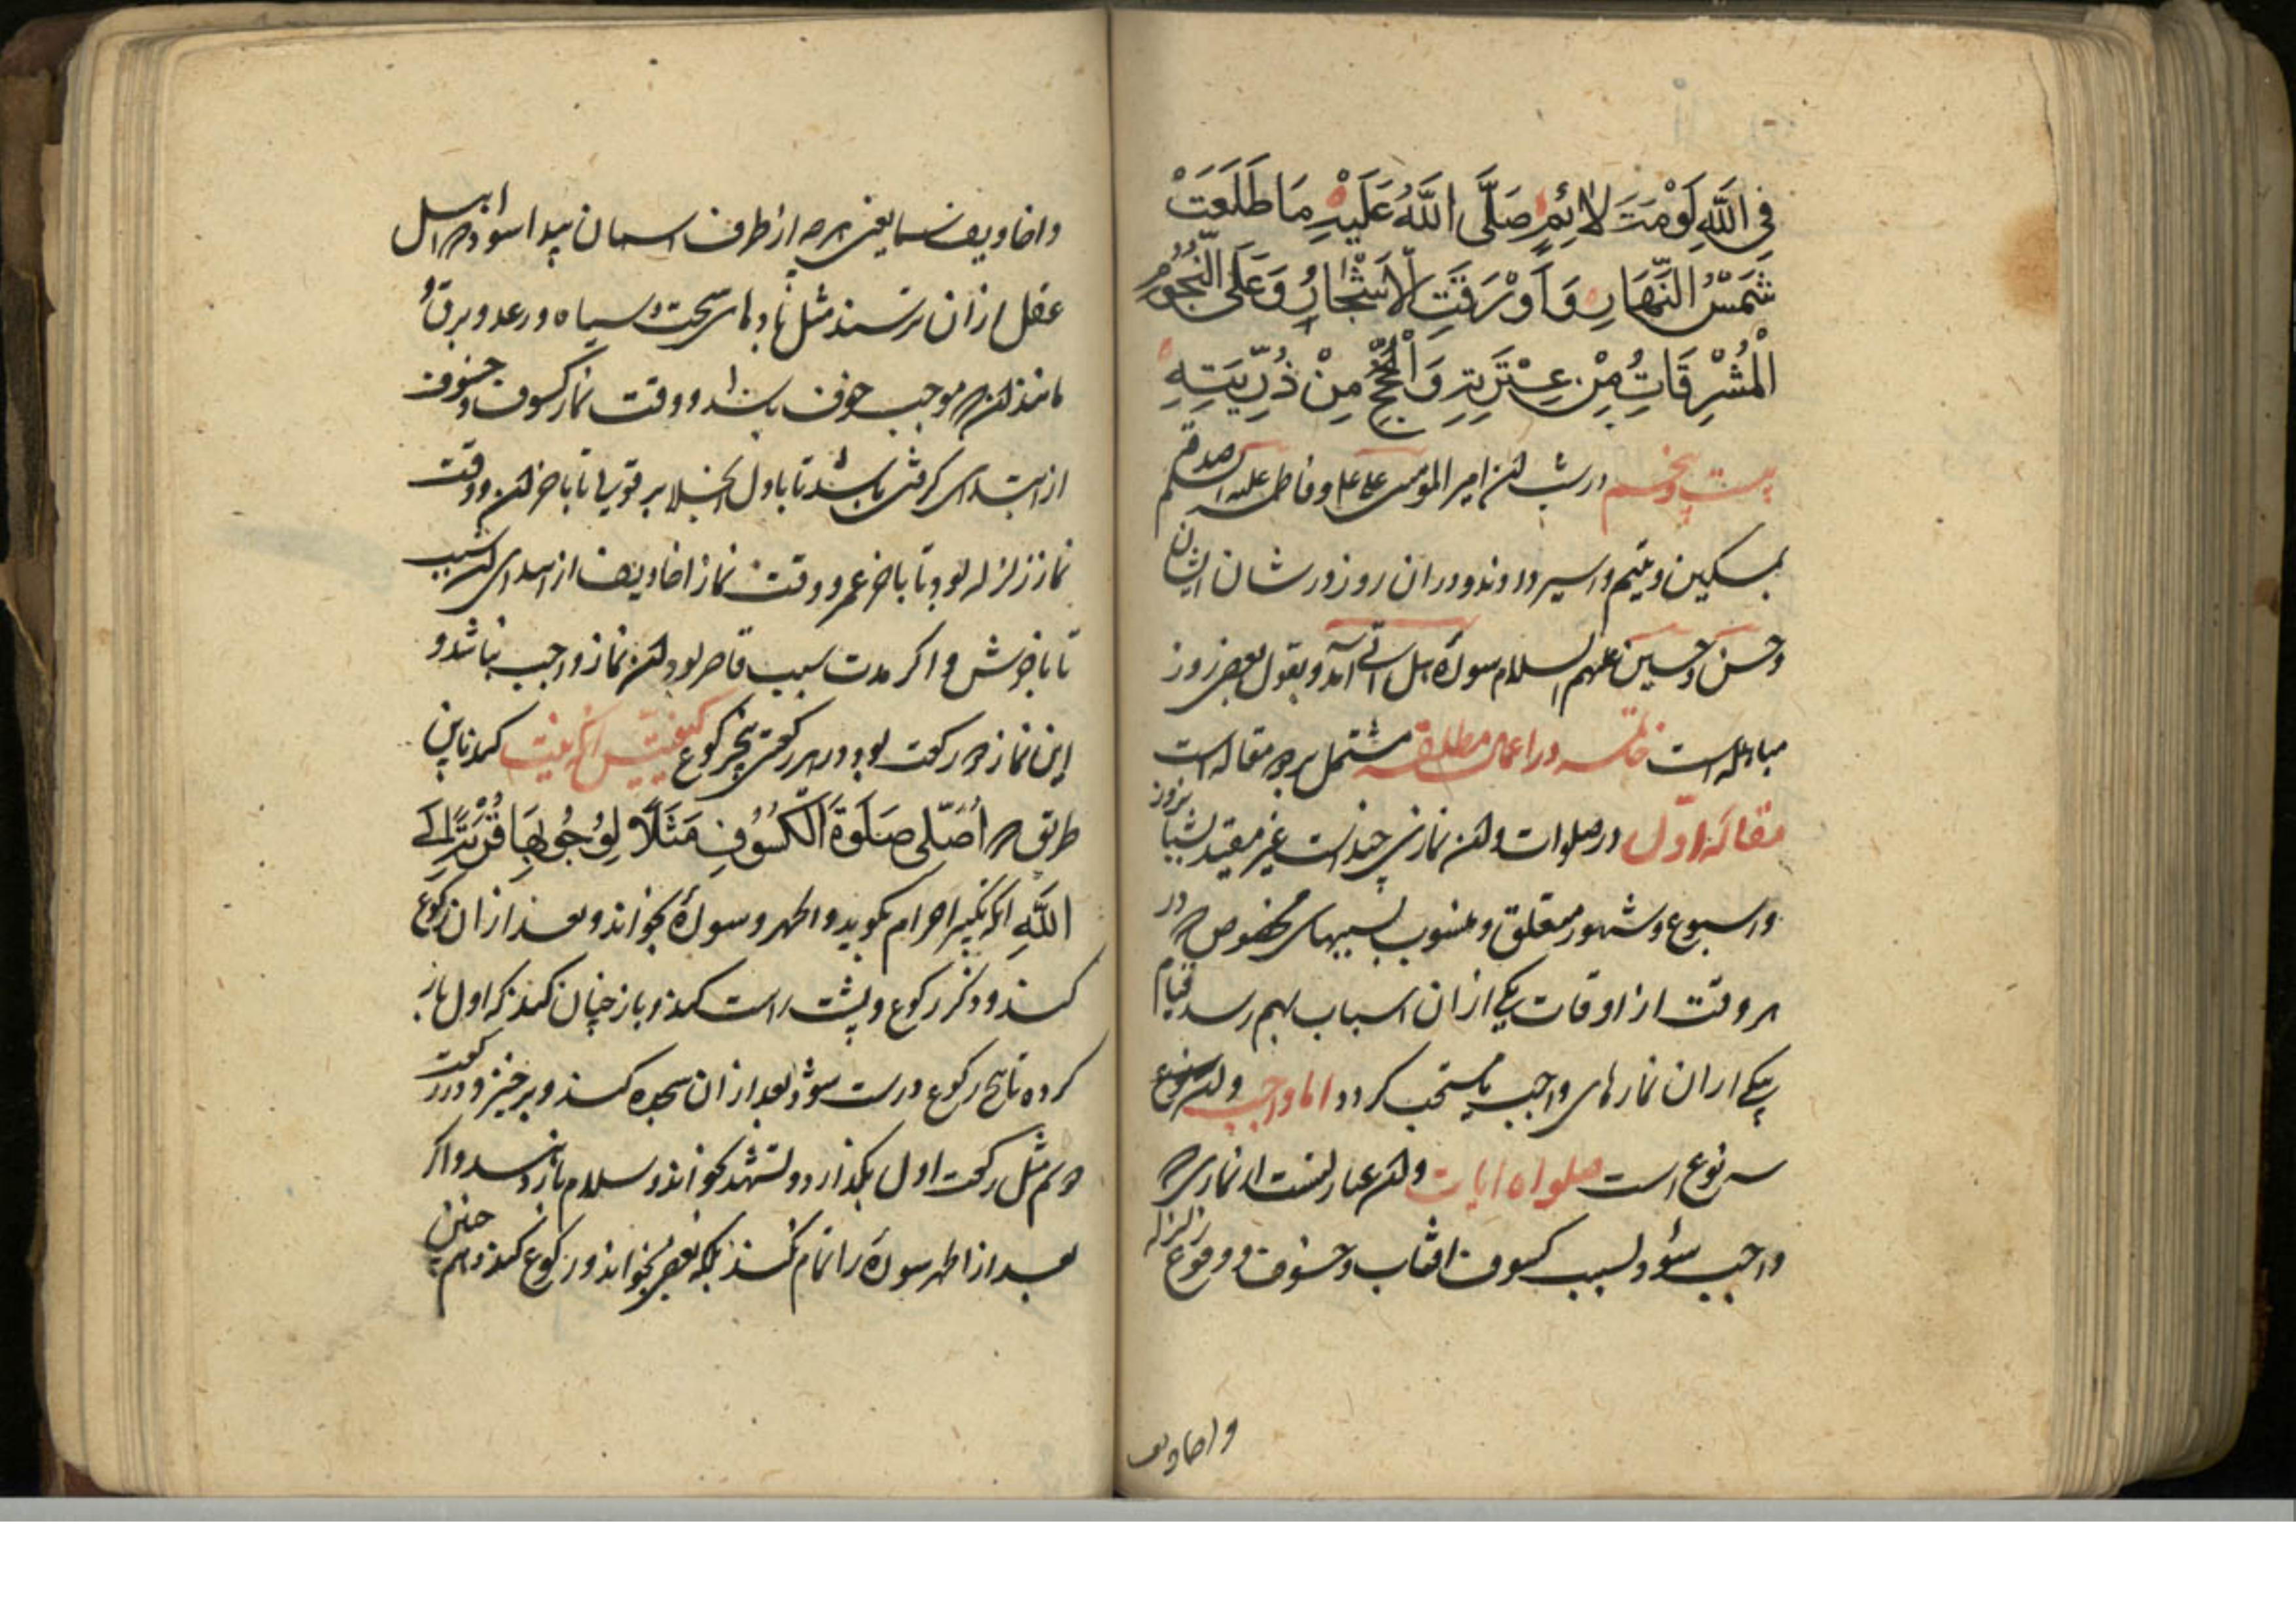 فِی اللَّهِ لَوْمَتَ لَائِمٍ صَلَّی اللَّهُ عَلَیْهِ مَا طَلَعَتْ
شَمْسُ النَّهَارِ وَ اَوْرَقَتِ الْاَشْجَارُ وَ عَلَی النُّجُوْمِ
الْمُشْرِقَاتِ مِنْ عِتْرَتِهِ وَ الْحُجَجِ مِنْ ذُرِّیَّتِهِ
بیست و پنجم در شب آن امیر المؤمنین علی ع و فاطمه علیها السلم صدقه
بمسکین و یتیم و اسیر دادند و در ان روز در شان ایشان
و حسن و حسین علیهم السلام سورۀ هل اتی آمد و بقول بعضی روز
مباهله است خاتمه در اعمال مطلقه مشتمل بر دو مقاله است
مقالۀ اول در صلوات و آن نمازی چند است غیر مقید بشبانروز
و اسبوع و شهور معلق و منسوب بسببهای مخصوص که در
هر وقت از اوقات یکی از ان اسباب بهم رسد قیام
بیکی از ان نمازهای واجب یا مستحب کردد اما واجب و آن
سه نوع است صلواه ایات و آن عبارتست از نمازی که
واجب شود بسبب کسوف افتاب و خسوف و وقوع زلزله
و اخاویف
و اخاویف سما یعنی هر چه از طرف اسمان پیدا شود که اهل
عقل از ان ترسند مثل بادهای سخت و سیاه و رعد و برق
مانند آن که موجب خوف باشد و وقت نماز کسوف و خسوف
از ابتدای کرفتن باشد تا باول انجلا بر قولی تا باخر آن و وقت
نماز زلزله بود تا باخر عمر و وقت نماز اخاویف از ابتدای آن سبب
تا باخرش و اکر مدت سبب قاصر بود آن نماز واجب نباشد و
این نماز دو رکعت بود در هر رکعتی پنج رکوع کیفیتش انکه نیت کند باین
طریق که اُصَلِّی صَلَوةَ الْکُسُوْفِ مَثَلًا لِوُجُوْبِهَا قُرْبَةً اِلَی
اللَّهِ انکه تکبیر احرام بکوید و الحمد و سورۀ بخواند و بعد از ان رکوع
کند و ذکر رکوع و پشت راست کند و باز چنان کند که اول بار
کرده تا پنج رکوع درست شود بعد از ان سجده کند و برخیزد و در رکعت
دوم مثل رکعت اول بکذارد و تشهد بخواند و سلام باز دهد و اکر
بعد از الحمد سورۀ را تمام نکند بلکه بعضی بخواند و رکوع کند و هم چنین